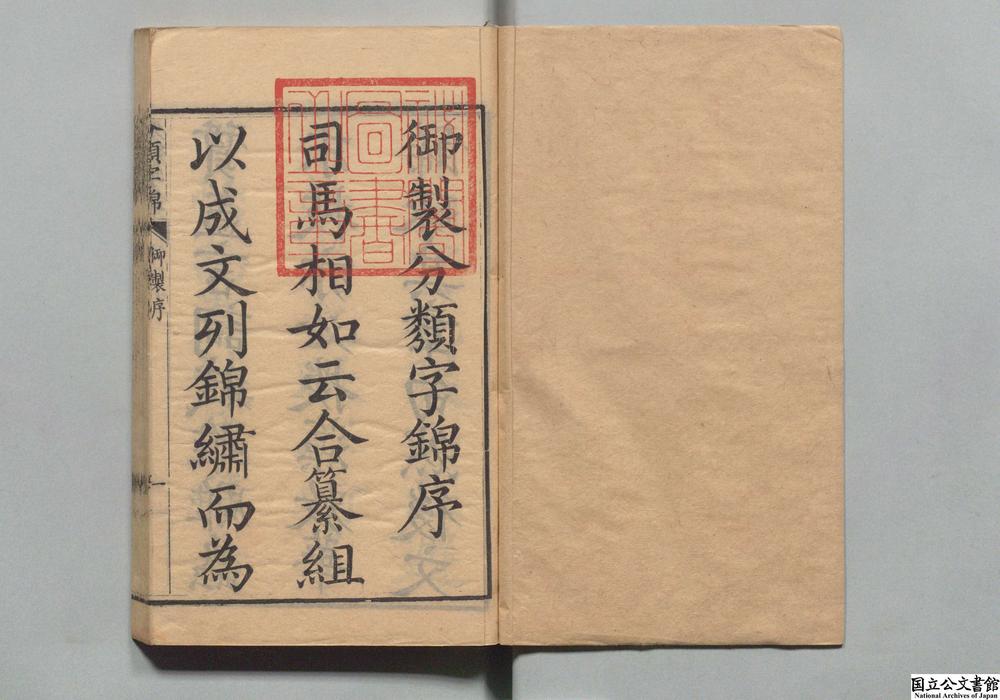 御製分類字錦序
司馬相如云合纂組
以成文列錦繡而為
分類字錦
御製序
一
国立公文書館
National Archives of Japan